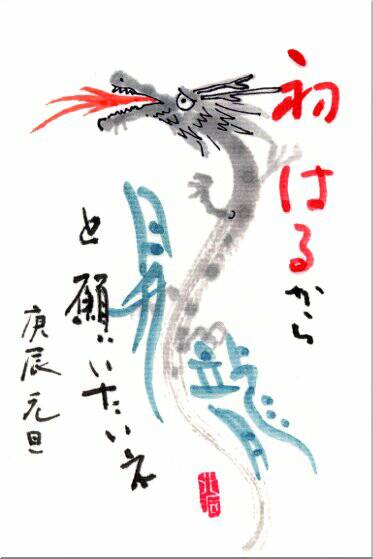 初はるから
昇龍
と願いたいネ
庚辰 元旦